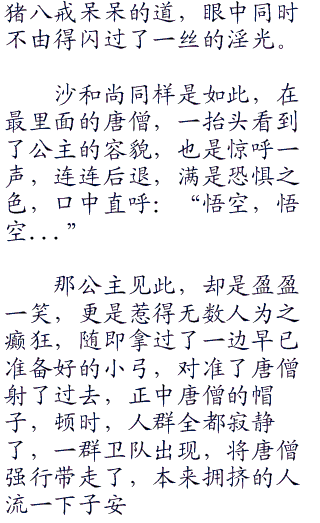 猪八戒呆呆的道，眼中同时
不由得闪过了一丝的淫光。
沙和尚同样是如此，在
最里面的唐僧，一抬头看到
了公主的容貌，也是惊呼一
声，连连后退，满是恐惧之
色，口中直呼：“悟空，悟
空...”
那公主见此，却是盈盈
一笑，更是惹得无数人为之
癫狂，随即拿过了一边早已
准备好的小弓，对准了唐僧
射了过去，正中唐僧的帽
子，顿时，人群全都寂静
了，一群卫队出现，将唐僧
强行带走了，本来拥挤的人
流一下子安